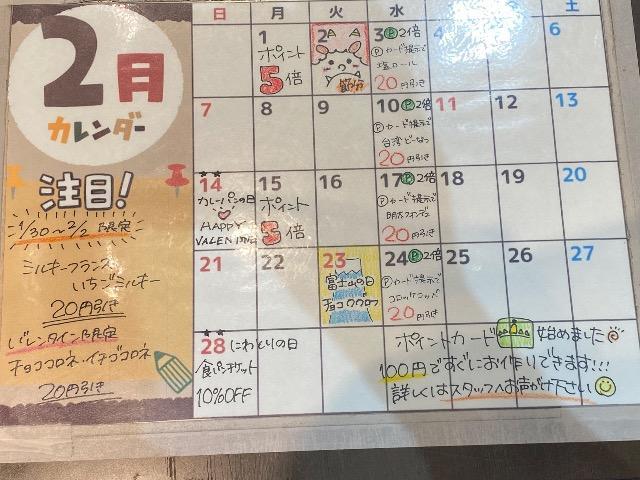 2月
カレンダー
注目!
1/30~2/2限定
ミルキーフランス
いちごミルキー
20円引き
バレンタイン限定
チョココロネ・イチゴコロネ
20円引き
日 月 火 水 土
1
ポイント
5倍
2
節分
3 P2倍
Pカード提示で
塩ロール
20円引き
4
6
7
8
9
10 P2倍
Pカード提示で
台湾どーなつ
20円引き
11
12
13
14
カレーパンの日
HAPPY
VALENTINE
15
ポイント
3倍
16
17 P2倍
Pカード提示で
明太フォンデュ
20円引き
18
19
20
21
22
23
富士山の日
チョコクグロフ
24 P2倍
Pカード提示で
コロッケコッペ
20円引き
25
26
27
28 にわとりの日
食パンチケット
10%OFF
ポイントカード 始めました
100円ですぐにお作りできます!!!
詳しくはスタッフへお声がけ下さい